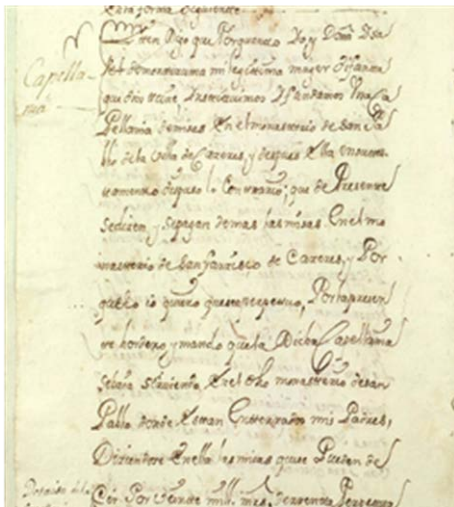 en la forma siguiente
Capellania
Yten digo que Por quanto Yo y Doña Ysa
bel de montenzuma mi legitima muger difunta
que dios tiene Instituimos y fundamos Una Ca
Pellania de misas En el monasterio de San Pa
blo de la Villa de Caceres, y despues Ella
despuso lo Contrario; que de Presente
se diçen, y se pagan demas las misas En el mo
nasterio de San françisco de Caceres, y Por
que yo quiero que sea perpetuo, Por la presen
te hordeno, y mando que la Dicha Capellania
se baia sirviendo En el dho monasterio de San
Pablo donde Estan Enterrados mis Padres,
Diziendose En ella las misas que se Pueden de
çir Por Veinte mill mrs de renta Perpetuo